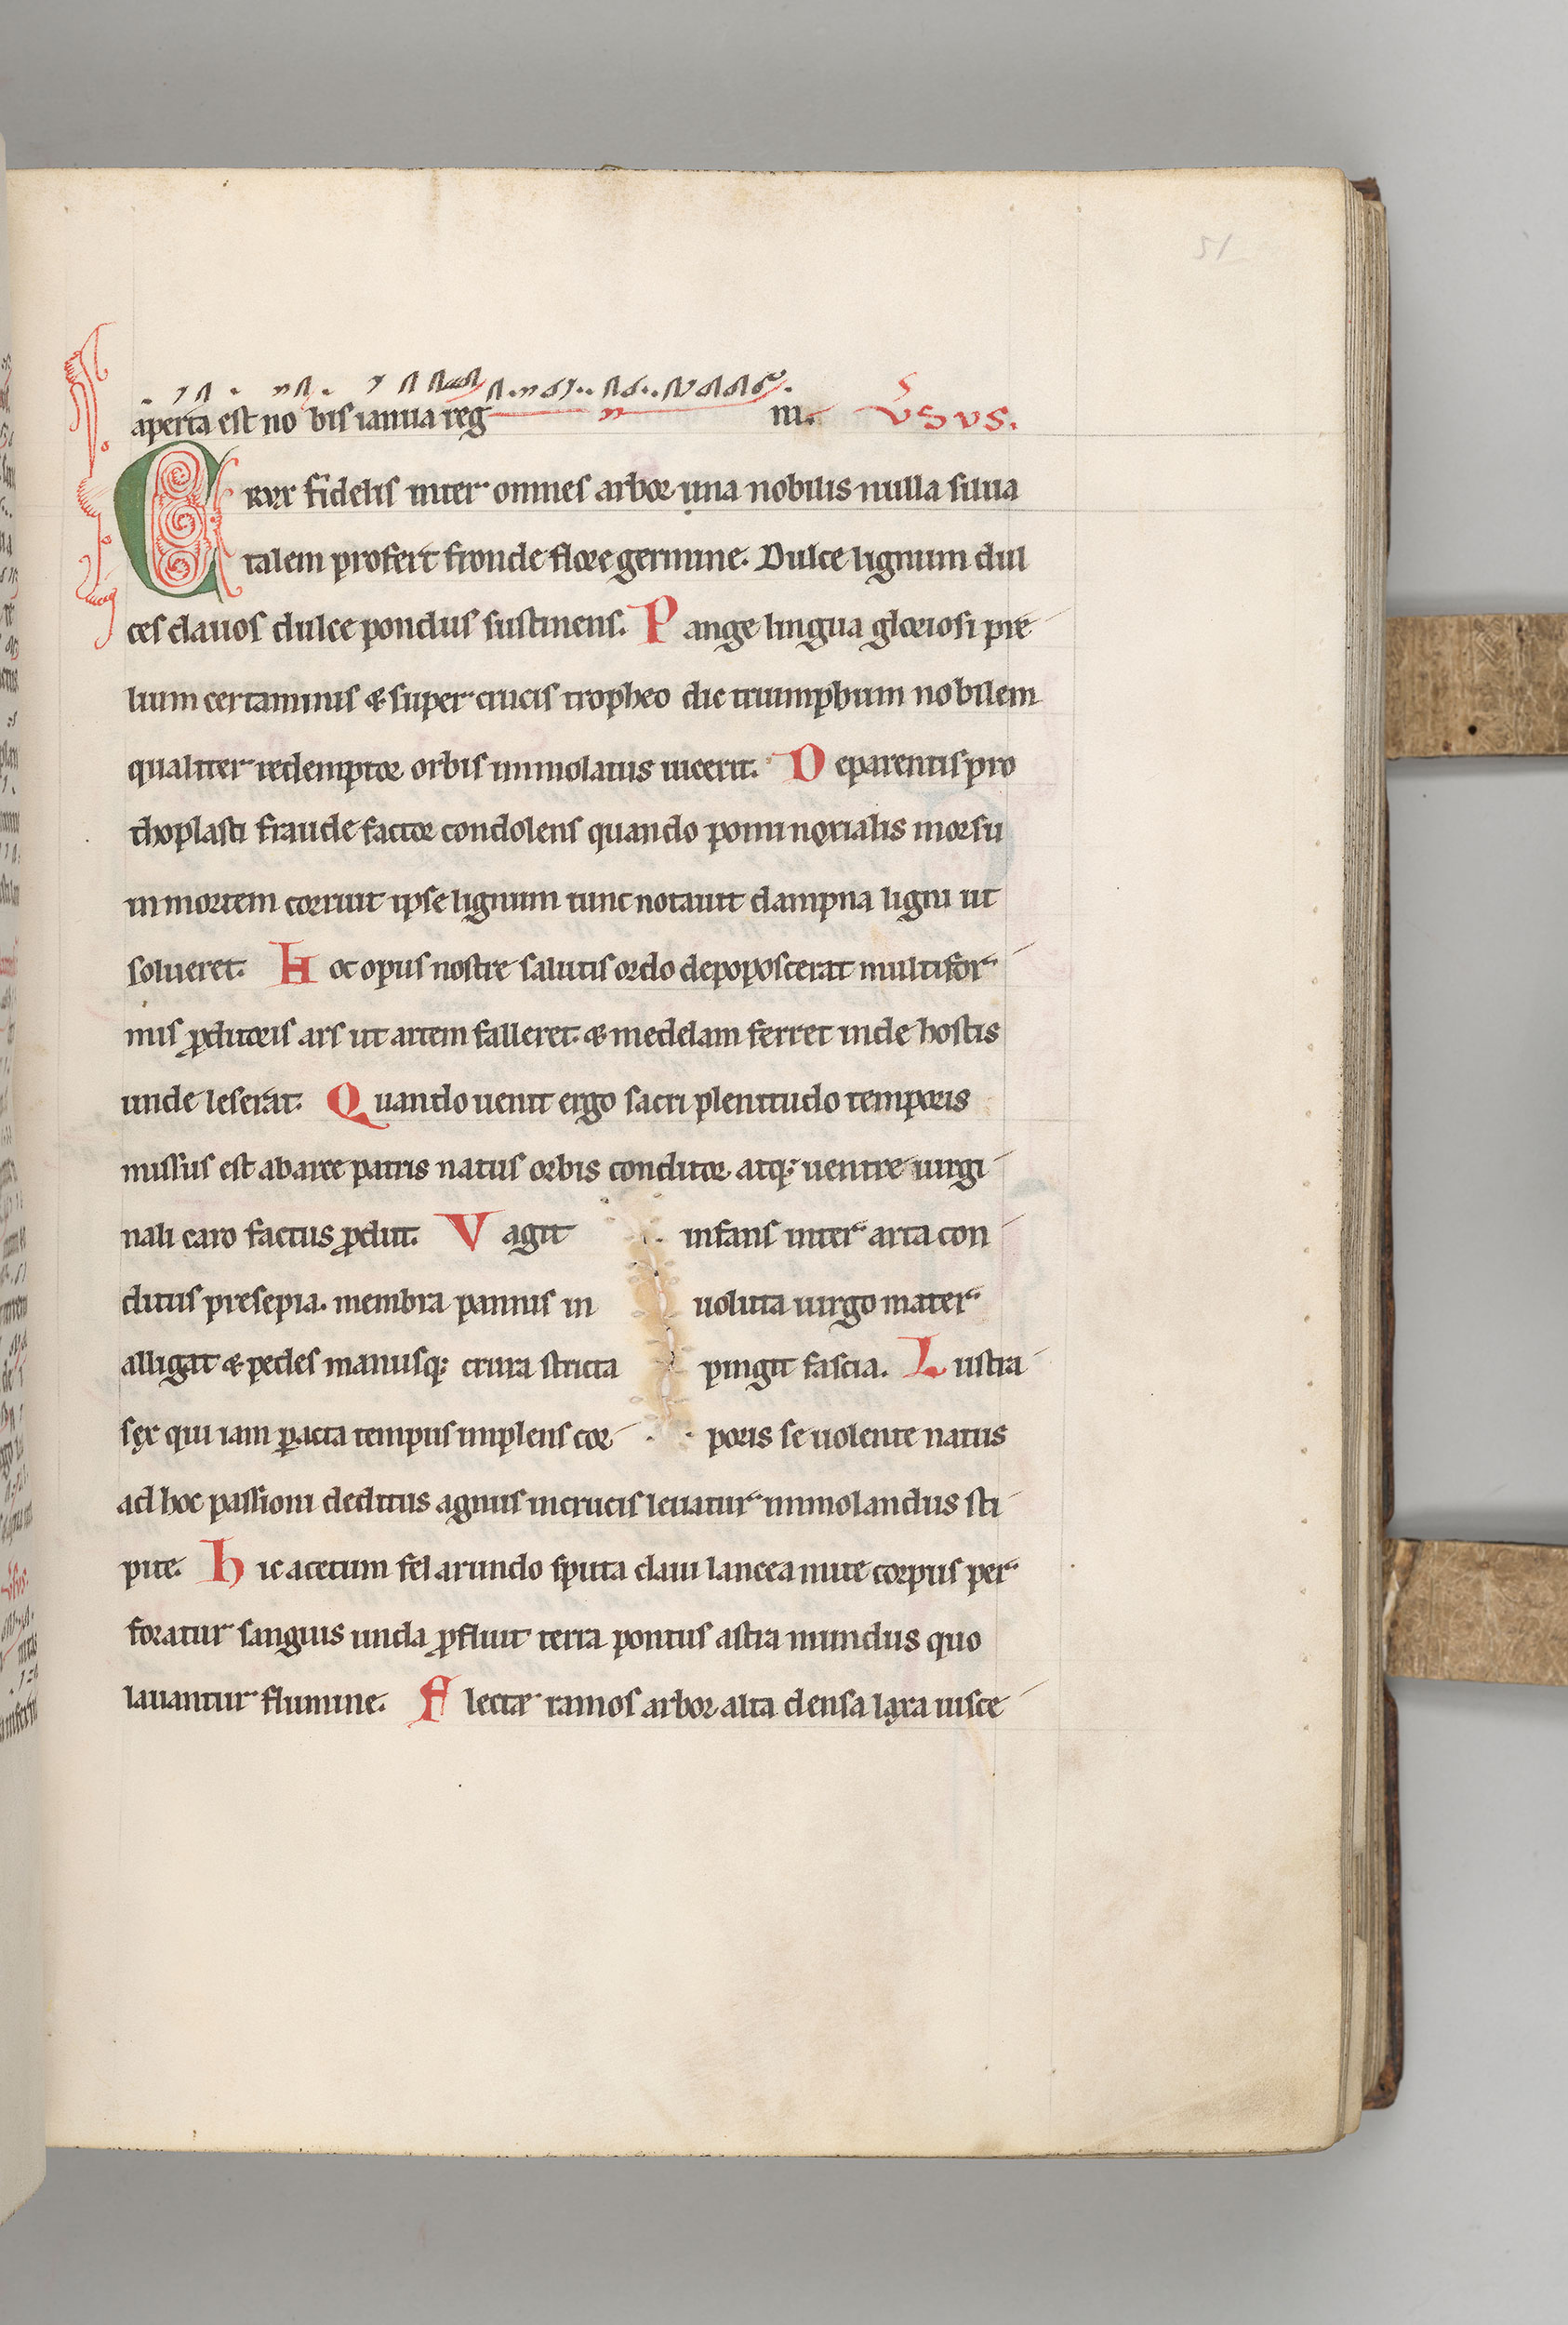 51
aperta est no bis ianua reg n m. Vsvs.
Crux fidelis inter omnes arbor una nobilis nulla silua
talem profert fronde flore germine. Dulce lignum dul
ces clauos dulce pondus sustinens. Pange lingua gloriosi pre
lium certaminis & super crucis tropheo dic triumphum nobilem
qualiter redemptor orbis immolatus uicerit. De parentis pro
thoplasti fraude factor condolens quando pomi noxialis morsu
in mortem corruit ipse lignum tunc notauit dampna ligni ut
solueret. Hoc opus nostre salutis ordo depoposcerat multifor
mis ꝓditoris ars ut artem falleret. & medelam ferret inde hostis
unde leserat. Quando uenit ergo sacri plenitudo temporis
missus est ab arce patris natus orbis conditor atq; uentre uirgi
nali caro factus ꝓdiit. Vagit infans inter arta con
ditus presepia. membra pannis in uoluta uirgo mater
alligat & pedes manusq; crura stricta pingit fascia. Lustra
sex qui iam ꝑacta tempus implens cor poris se uolente natus
ad hoc passioni deditus agnus in crucis leuatur immolandus sti
pite. Hic acetum fel arundo sputa claui lancea mite corpus per
foratur sanguis unda ꝓfluit terra pontus astra mundus quo
lauantur flumine. Flecte ramos arbor alta densa laxa uisce